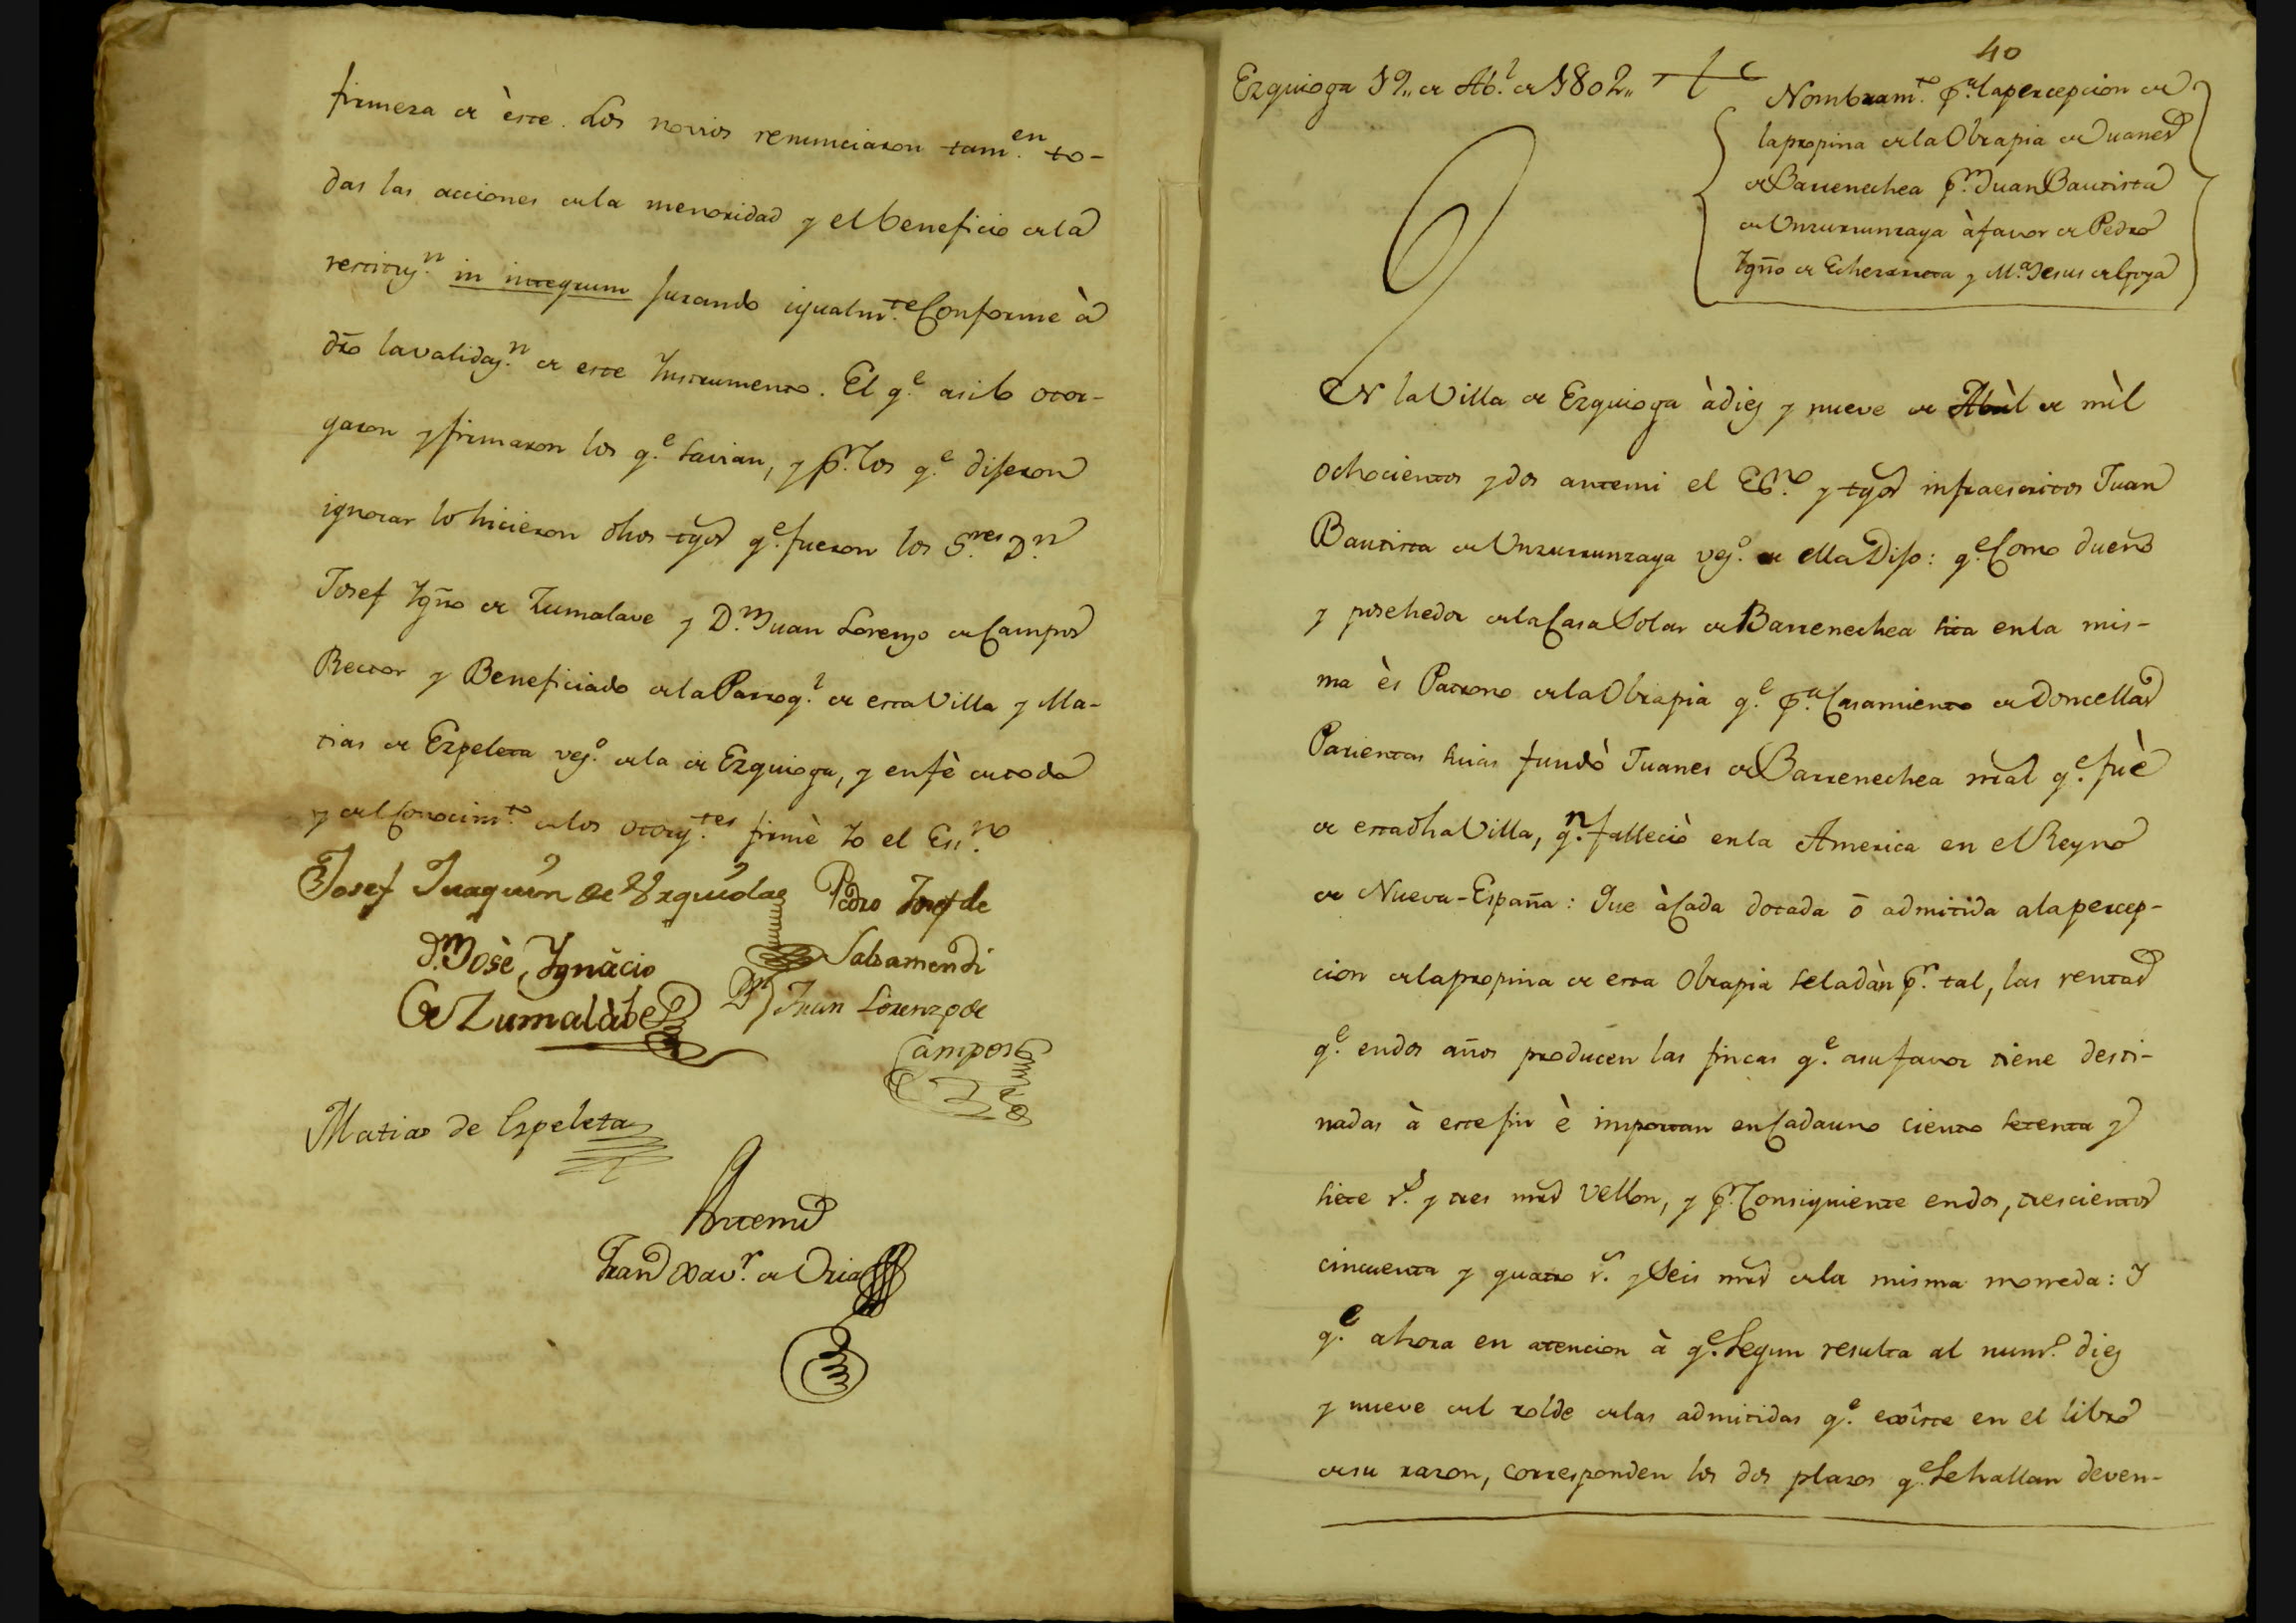 firmeza de èste. Los novios renunciaron tam.en to-
das las acciones de la menoridad y el beneficio de la
restituz.n in integrum jurando igualm.te Conforme à
dro la validaz.n de este Instrumento. El q.e asi lo otor-
garon y firmaron los q.e savian, y p.r los q.e dijeron
ignorar lo hicieron dhos tgos q.e fueron los S.res D.n
Josef Ygño de Zumalave y D.n Juan Lorenzo de Campos
Rector y Beneficiado de la Parroq.l de esta Villa y Ma-
tias de Ezpeleta vez.o de la de Ezquioga, y en fè de todo
y del Conocim.to de los otorg.tes firmè Yo el Ess.no
Josef Juaquin de Urquiola Pedro Josef de
D.n Josè Ygnacio Salsamendi
de Zumalàbe D.n Juan Lorenzo de
Campos
Matias de Ezpeleta
Antemi
Fran.co Xav.r de Oria
40
Ezquioga 19,, de Ab.l de 1802,,
Nombram.to p.a la percepcion de
la propina de la Obrapia de Juanes
de Barrenechea p.r Juan Bautista
de Unzurrunzaga à favor de Pedro
Ygño de Echezarreta y M.a Jesus de
En la Villa de Ezquioga à diez y nueve de Abril de mìl
ochocientos y dos antemi el Es.no y tgos infraescritos Juan
Bautista de Unzurrunzaga vez.o de ella Dijo: q.e Como dueño
y posehedor de la Casa Solar de Barrenechea sita en la mis-
ma ès Patrono de la Obrapia q.e p.a Casamiento de Doncellas
Parientas suias fundò Juanes de Barrenechea nral q.e fuè
de esta dha Villa, q.n falleciò en la America en el Reyno
de Nueva-España: Que à Cada dotada ō admitida a la percep-
cion de la propina de esta Obrapia se la dàn p.r tal, las rentas
q.e en dos años producen las fincas q.e a su favor tiene desti-
nadas à este fin è importan en Cada uno ciento setenta y
siete r.s y tres mrs vellon, y p.r Consiguiente en dos, trescientos
cincuenta y quatro r.s y Seis mrs de la misma moneda: Y
q.e ahora en atencion à q.e Segun resulta al num.o diez
y nueve del rolde de las admitidas q.e exîste en el libro
de su razon, corresponden los dos plazos q.e Se hallan deven-